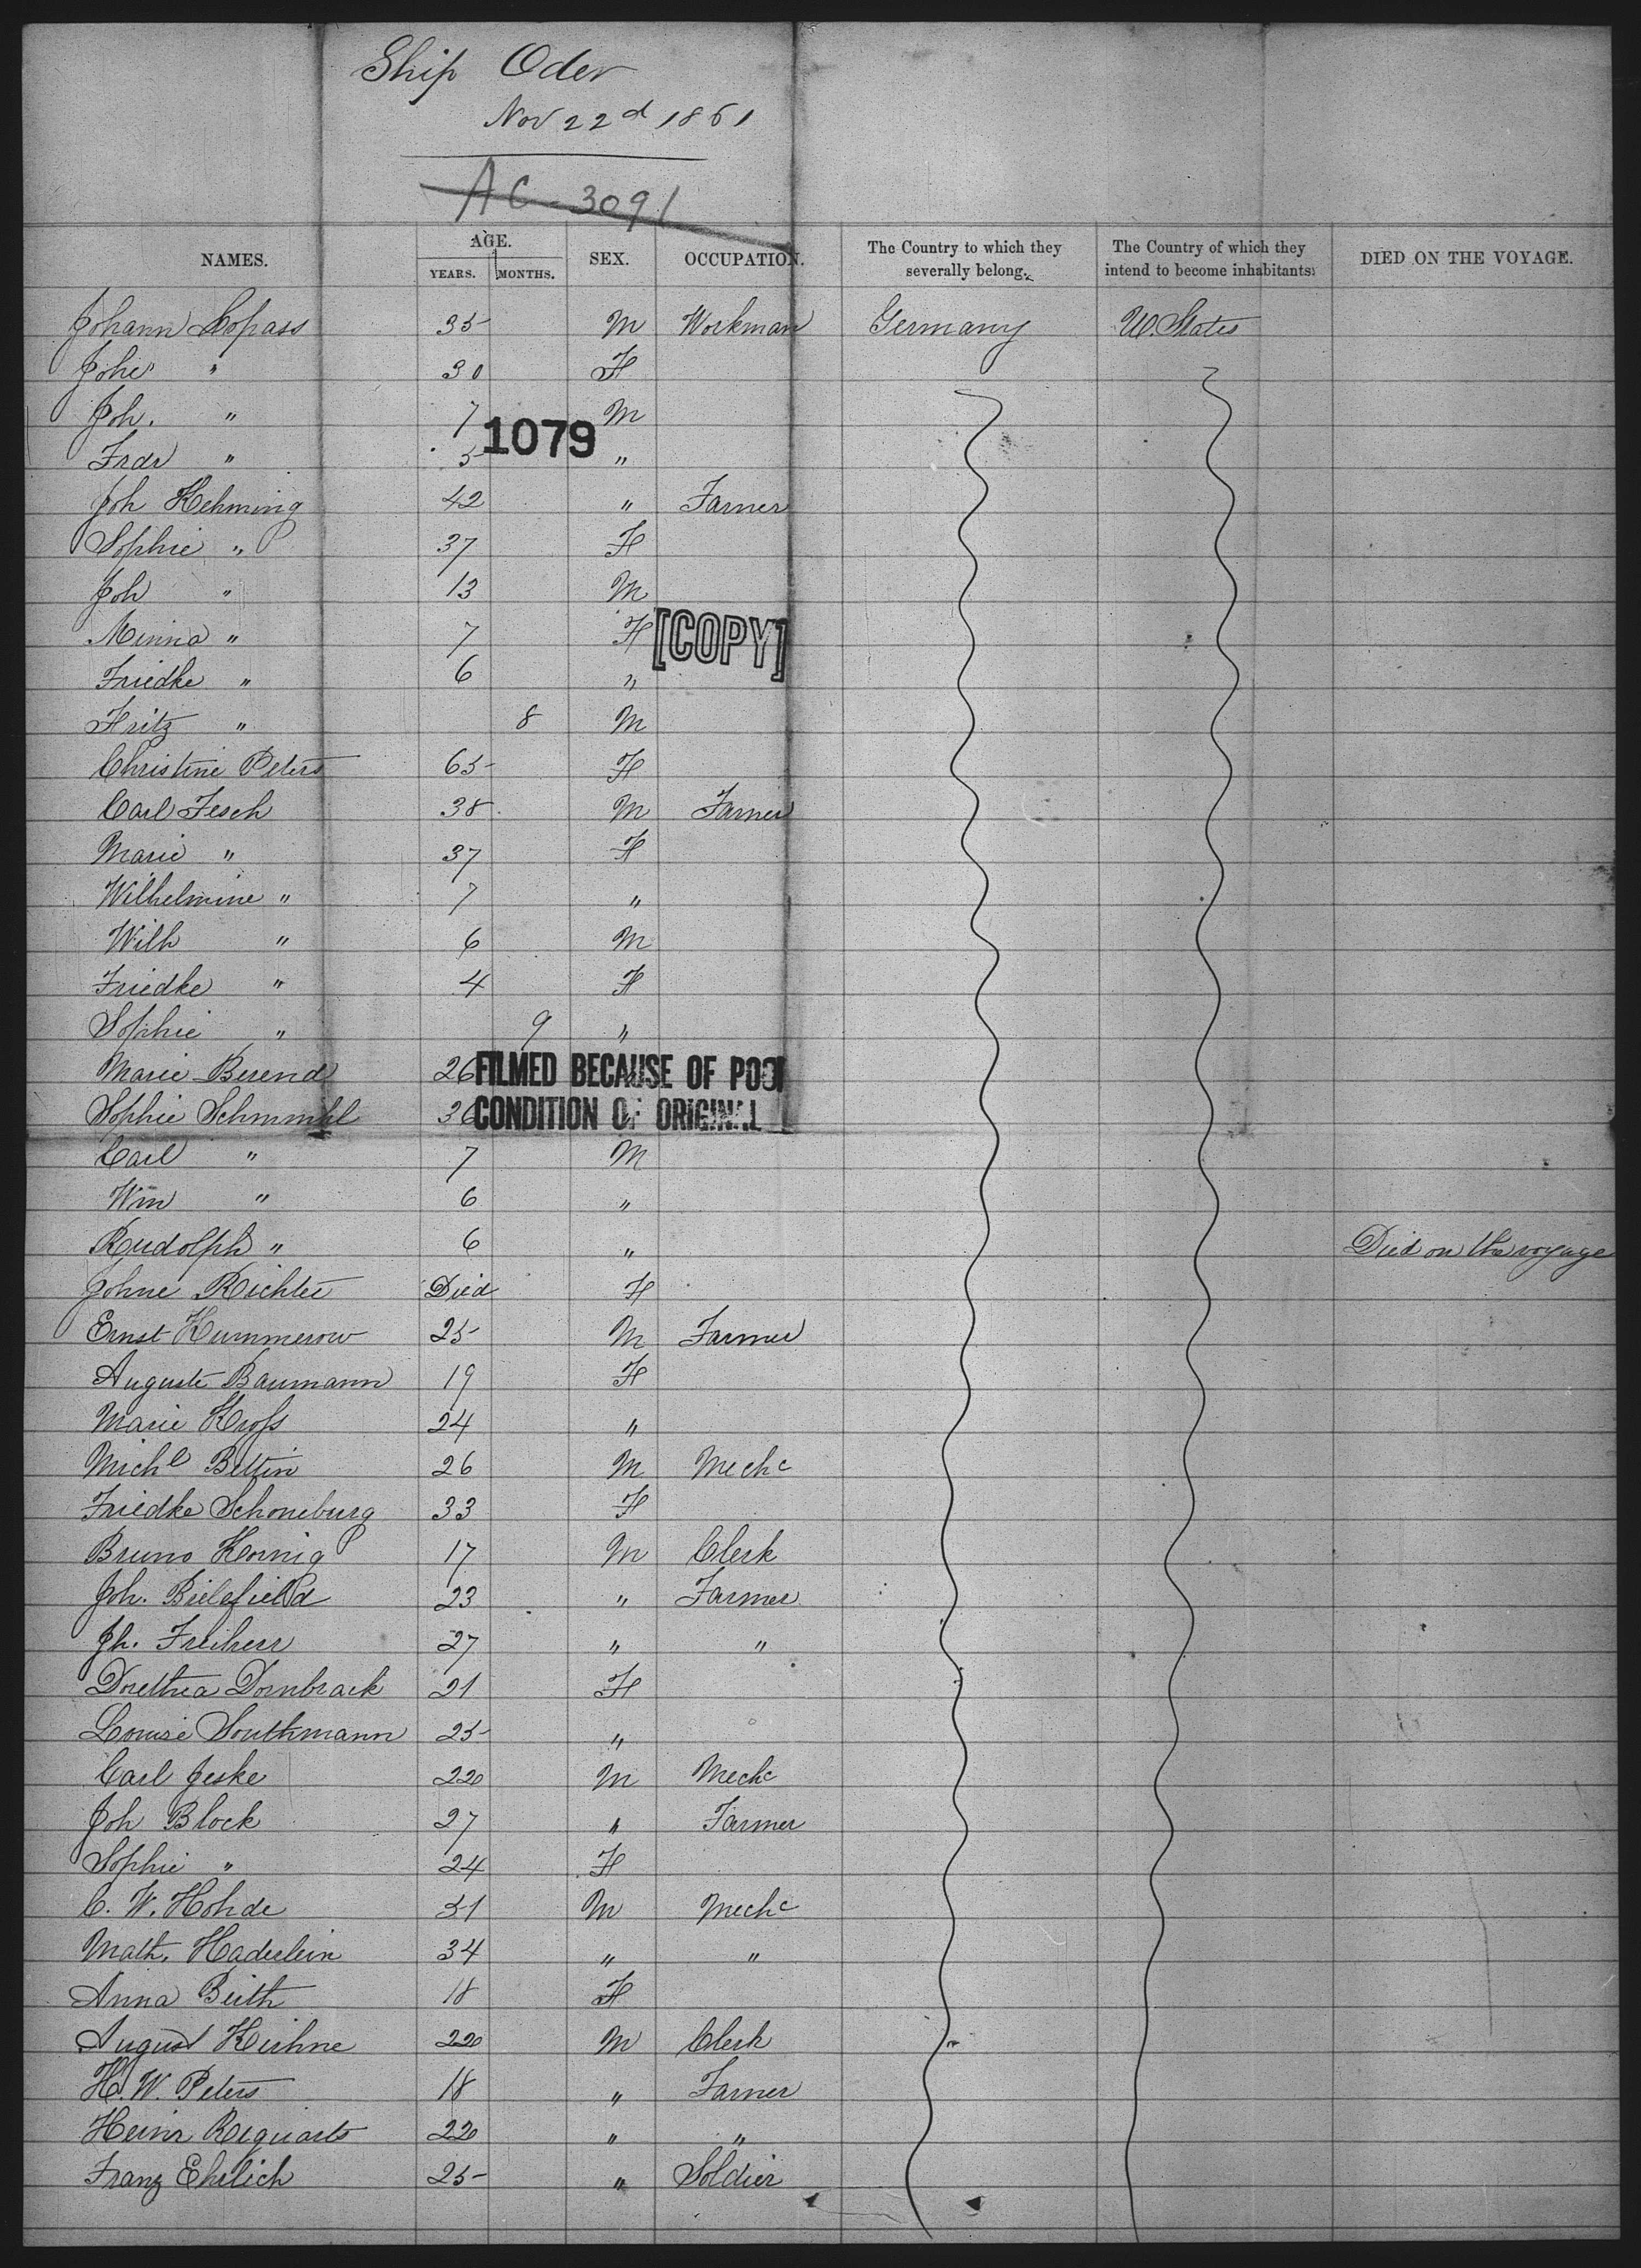 Ship Oder
Nov 22d 1861
AC-3091
NAMES. AGE. YEARS. MONTHS. SEX. OCCUPATION. The Country to which they severally belong. The Country of which they intend to become inhabitants. DIED ON THE VOYAGE.
Johann Lopass 35 M Workman Germany U. States
Johe " 30 F
Joh. " 7 M
1079
Frdr " 5 "
Joh Hehming 42 " Farmer
Sophie " 37 F
Joh " 13 M
Minna " 7 F
[COPY]
Friedke " 6 "
Fritz " 8 M
Christine Peters 65 F
Carl Fesch 38 M Farmer
Marie " 37 F
Wilhelmine " 7 "
Wilh " 6 M
Friedke " 4 F
Sophie " 9 "
Marie Berend 26
FILMED BECAUSE OF POOR
Sophie Schmmhl 36 "
CONDITION OF ORIGINAL
Carl " 7 M
Wm " 6 "
Rudolph " 6 " Died on the voyage
Johne Richter Died F
Ernst Kummerow 25 M Farmer
Auguste Baumann 19 F
Marie Kross 24 "
Michl Bettin 26 M Mechc
Friedke Schoneburg 33 F
Bruno Kornig 17 M Clerk
Joh. Bielefield 23 " Farmer
Jh. Freiherr 27 " "
Dorethea Dornbrack 21 F
Louise Southmann 25 "
Carl Jeske 22 M Mechc
Joh Block 27 " Farmer
Sophie " 24 F
C. W. Hohde 51 M Mechc
Math. Haderlein 34 " "
Anna Beith 18 F
August Kuhne 22 M Clerk
H. W. Peters 18 " Farmer
Heinr Requarts 22 " "
Franz Ehrlich 25 " Soldier